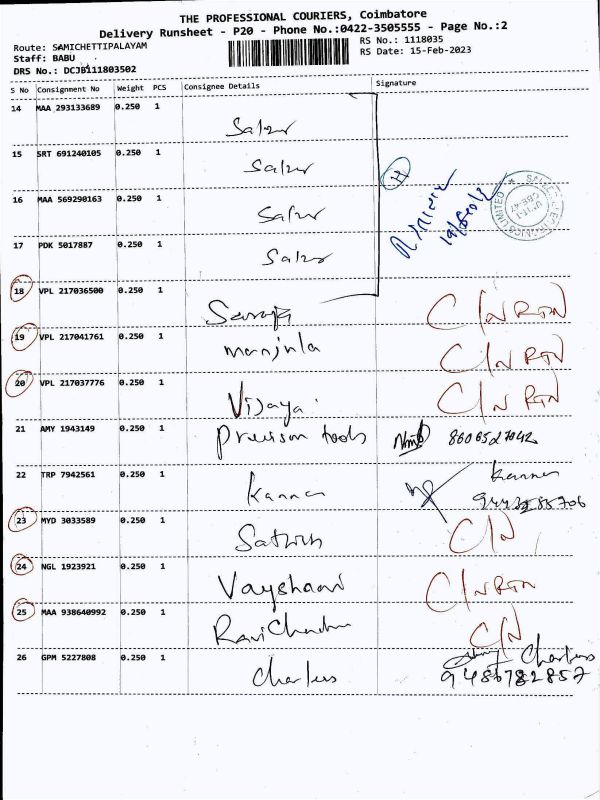 THE PROFESSIONAL COURIERS, Coimbatore
Delivery Runsheet - P20 - Phone No.:0422-3505555 - Page No.:2
Route: SAMICHETTIPALAYAM
RS No.: 1118035
Staff: BABU
RS Date: 15-Feb-2023
DRS No.: DCJB111803502
S No Consignment No Weight PCS Consignee Details Signature
14 MAA 293133689 0.250 1
Salzer
15 SRT 691240105 0.250 1
Salzer
16 MAA 569290163 0.250 1
Salzer
17 PDK 5017887 0.250 1
Salzer
18 VPL 217036500 0.250 1
C/N RTN
19 VPL 217041761 0.250 1
manjula C/N RTN
20 VPL 217037776 0.250 1
Vijaya C/N RTN
21 AMY 1943149 0.250 1
Precision tools 8606527042
22 TRP 7942561 0.250 1
Kannan Kannan
23 MYD 3033589 0.250 1
Sathish C/N
24 NGL 1923921 0.250 1
C/N RTN
25 MAA 938640992 0.250 1
Ravichandran C/N
26 GPM 5227808 0.250 1
Charless Charless
9486782857